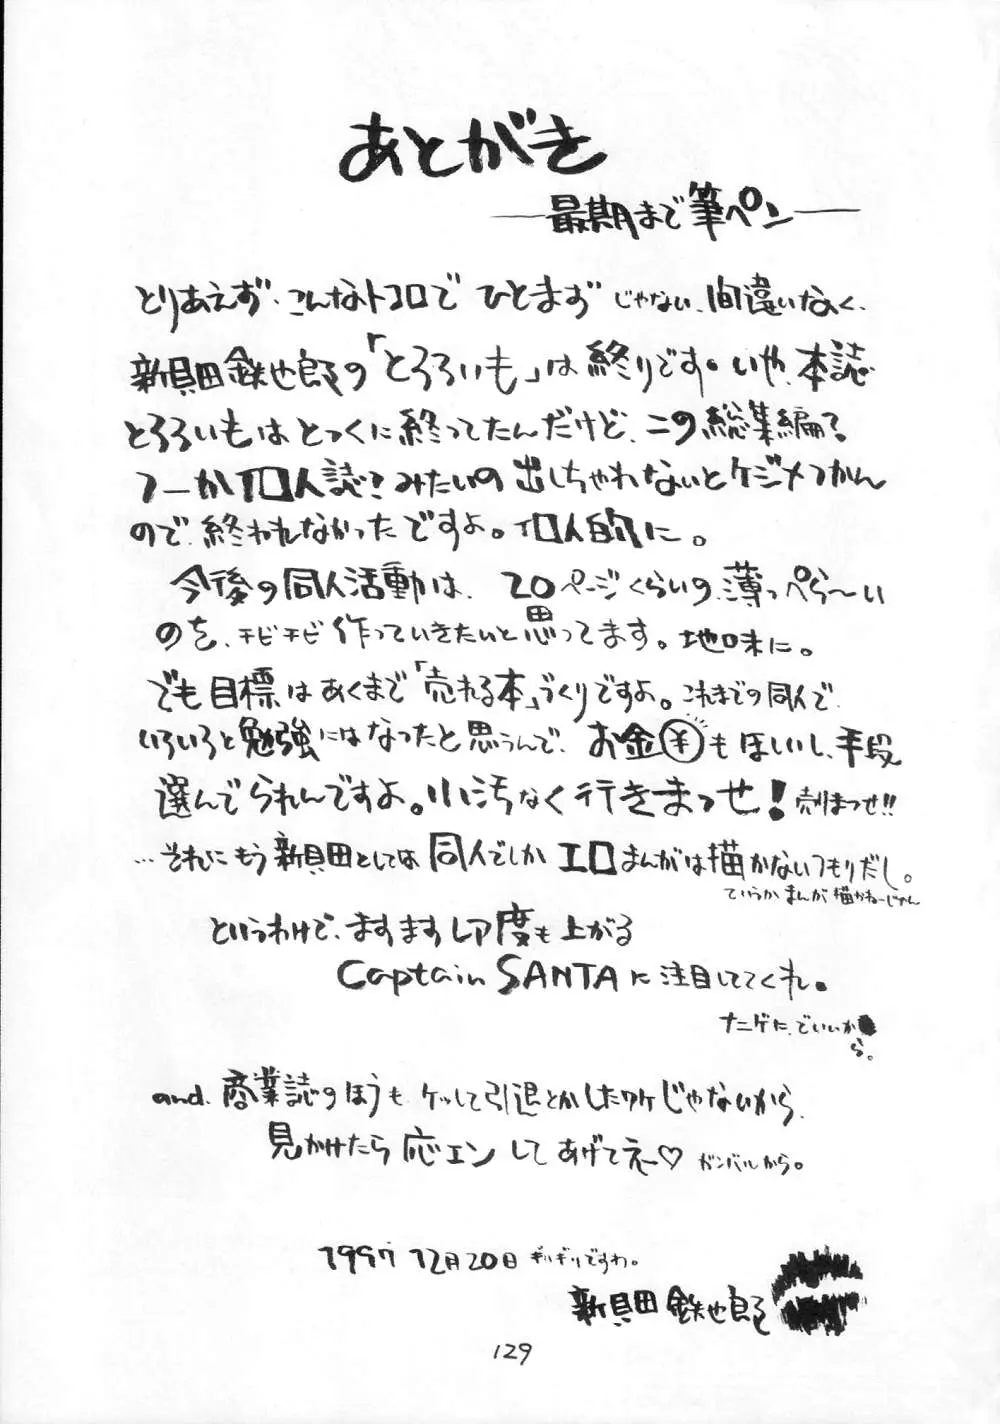 あとがき
—最期まで筆ペン—
とりあえず、こんなトコロで ひとまず じゃない、間違いなく、
新貝田鉄也郎の「とろろいも」は終りです。いや、本誌
とろろいもはとっくに終ってたんだけど、この総集編?
つーか個人誌?みたいの出しちゃわないとケジメつかん
ので、終われなかったですよ。個人的に。
今後の同人活動は、20ページくらいの、薄っぺら〜い
のを、チビチビ作っていきたいと思ってます。地味に。
でも目標はあくまで「売れる本」づくりですよ。これまでの同人で、
いろいろと勉強にはなったと思うんで、お金¥もほしいし、手段
選んでられんですよ。小汚なく行きまっせ!売りまっせ!!
…それにもう新貝田としては同人でしかエロまんがは描かないつもりだし。
ていうかまんが描かねーじゃん
というわけで、ますますレア度も上がる
Captain SANTAに注目しててくれ。
ナニゲに、でいいか
ら。
and、商業誌のほうも、ケッして引退とかしたワケじゃないから、
見かけたら応エンしてあげてえー♡ ガンバルから。
1997 12月20日 ギリギリですわ。
新貝田鉄也郎
129